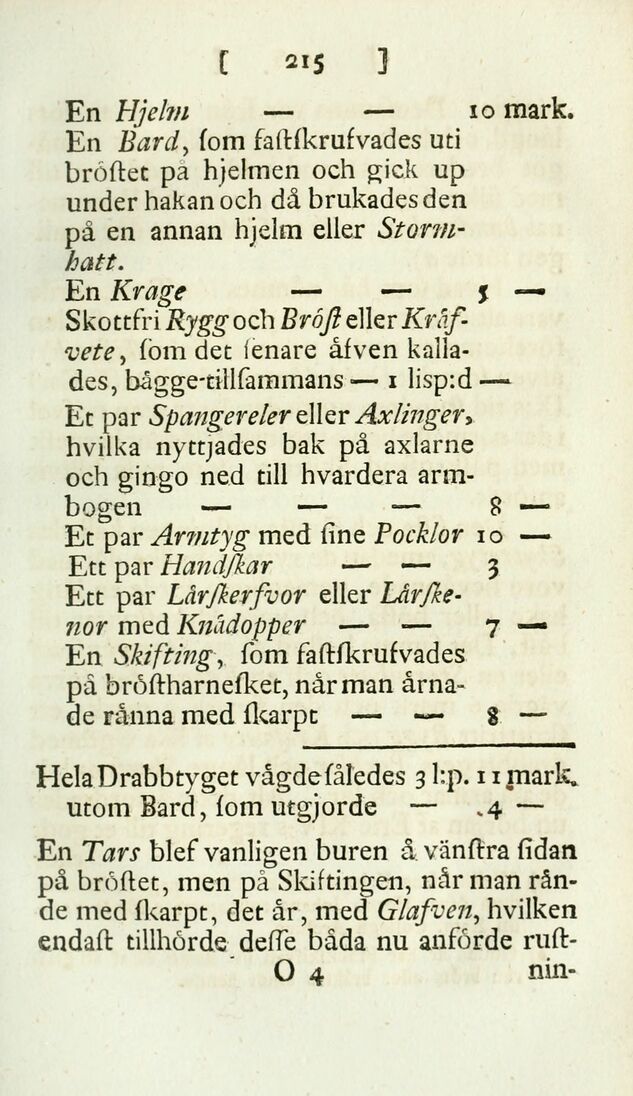 [ 215 ]
En Hjelm — — 10 mark.
En Bard, ſom faſtſkrufvades uti
bröſtet på hjelmen och gick up
under hakan och då brukades den
på en annan hjelm eller Storm-
hatt.
En Krage — — 5 —
Skottfri Rygg och Bröſt eller Kräf-
vete, ſom det ſenare åfven kalla-
des, bågge-tillſammans — 1 lisp:d —
Et par Spangereler eller Axlinger,
hvilka nyttjades bak på axlarne
och gingo ned till hvardera arm-
bogen — — — 8 —
Et par Armtyg med ſine Pocklor 10 —
Ett par Handſkar — — 3
Ett par Lårſkerfvor eller Lårſke-
nor med Knädopper — — 7 —
En Skifting, ſom faſtſkrufvades
på bröſtharneſket, når man årna-
de rånna med ſkarpt — — 8 —
Hela Drabbtyget vågde ſåledes 3 l:p. 11 mark.
utom Bard, ſom utgjorde — .4 —
En Tars blef vanligen buren å vänſtra ſidan
på bröſtet, men på Skiftingen, når man rån-
de med ſkarpt, det år, med Glafven, hvilken
endaſt tillhörde deſſe båda nu anförde ruſt-
O 4 nin-